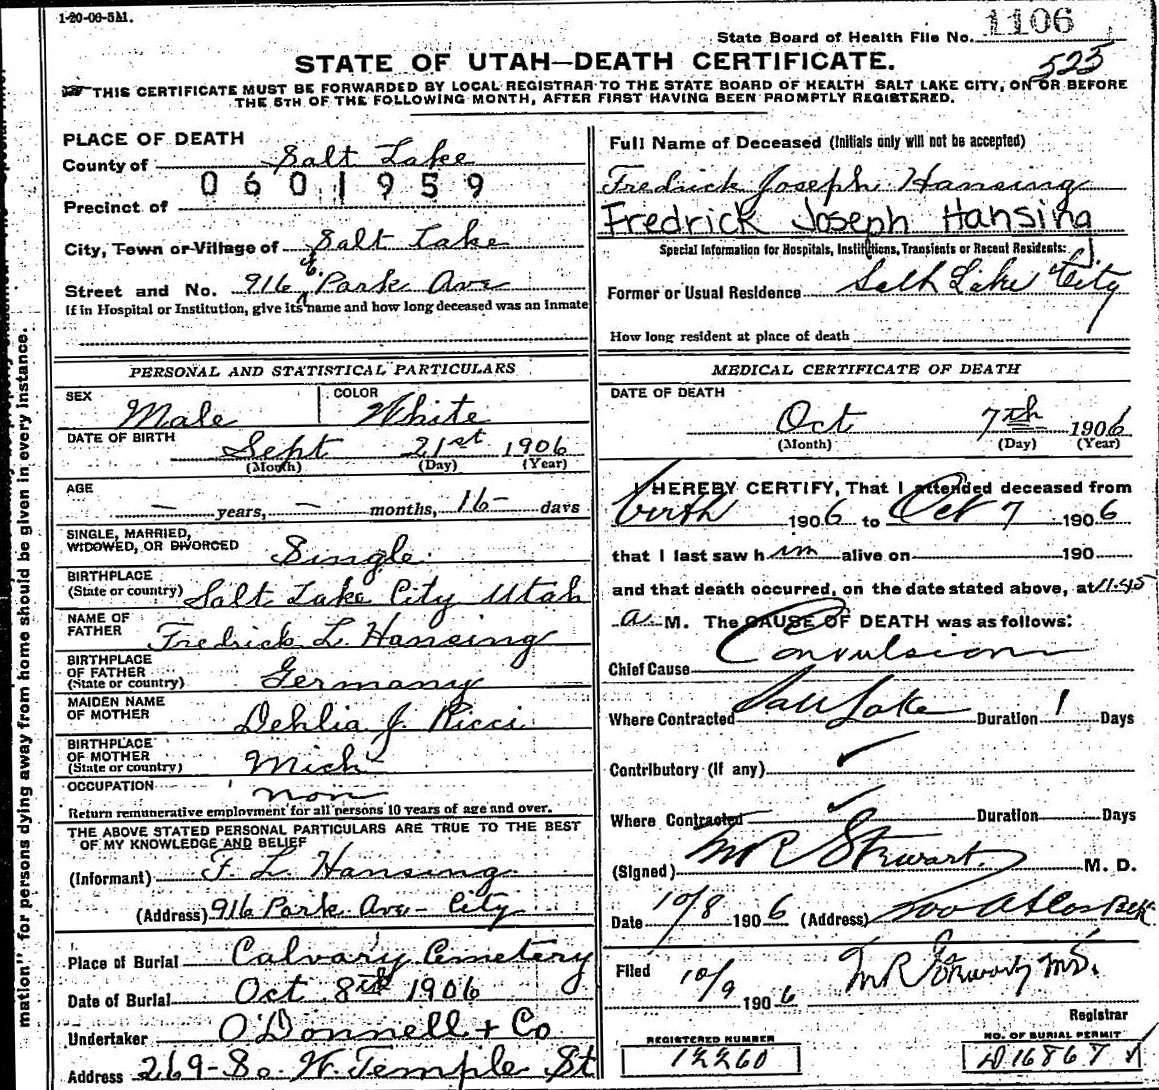 1-20-06-5M.
State Board of Health File No. 1106
STATE OF UTAH—DEATH CERTIFICATE.
525
THIS CERTIFICATE MUST BE FORWARDED BY LOCAL REGISTRAR TO THE STATE BOARD OF HEALTH SALT LAKE CITY, ON OR BEFORE
THE 5TH OF THE FOLLOWING MONTH, AFTER FIRST HAVING BEEN PROMPTLY REGISTERED.
PLACE OF DEATH
County of Salt Lake
0601959
Precinct of
City, Town or Village of Salt Lake
Street and No. 916 Park Ave
If in Hospital or Institution, give its name and how long deceased was an inmate
PERSONAL AND STATISTICAL PARTICULARS
SEX Male COLOR White
DATE OF BIRTH Sept 21st 1906
(Month) (Day) (Year)
AGE — years, — months, 16 days
SINGLE, MARRIED,
WIDOWED, OR DIVORCED Single
BIRTHPLACE
(State or country) Salt Lake City Utah
NAME OF
FATHER Fredrick L. Hansing
BIRTHPLACE
OF FATHER
(State or country) Germany
MAIDEN NAME
OF MOTHER Dehlia J. Ricci
BIRTHPLACE
OF MOTHER
(State or country) Mich
OCCUPATION non
Return remunerative employment for all persons 10 years of age and over.
THE ABOVE STATED PERSONAL PARTICULARS ARE TRUE TO THE BEST
OF MY KNOWLEDGE AND BELIEF
(Informant) F. L. Hansing
(Address) 916 Park Ave - City
Place of Burial Calvary Cemetery
Date of Burial Oct 8th 1906
Undertaker O'Donnell + Co
Address 269 - So. W. Temple St
Full Name of Deceased (Initials only will not be accepted)
Fredrick Joseph Hansing
Fredrick Joseph Hansing
Special Information for Hospitals, Institutions, Transients or Recent Residents:
Former or Usual Residence Salt Lake City
How long resident at place of death
MEDICAL CERTIFICATE OF DEATH
DATE OF DEATH
Oct 7th 1906
(Month) (Day) (Year)
I HEREBY CERTIFY, That I attended deceased from
birth 1906 to Oct 7 1906
that I last saw him alive on 190
and that death occurred, on the date stated above, at 11.45
a. M. The CAUSE OF DEATH was as follows:
Chief Cause Convulsion
Where Contracted Salt Lake Duration 1 Days
Contributory (if any)
Where Contracted Duration Days
(Signed) M R Stewart M. D.
Date 10/8 1906 (Address)
Filed 10/9 1906 M R Stewart MD.
Registrar
REGISTERED NUMBER
12260
NO. OF BURIAL PERMIT
mation" for persons dying away from home should be given in every instance.